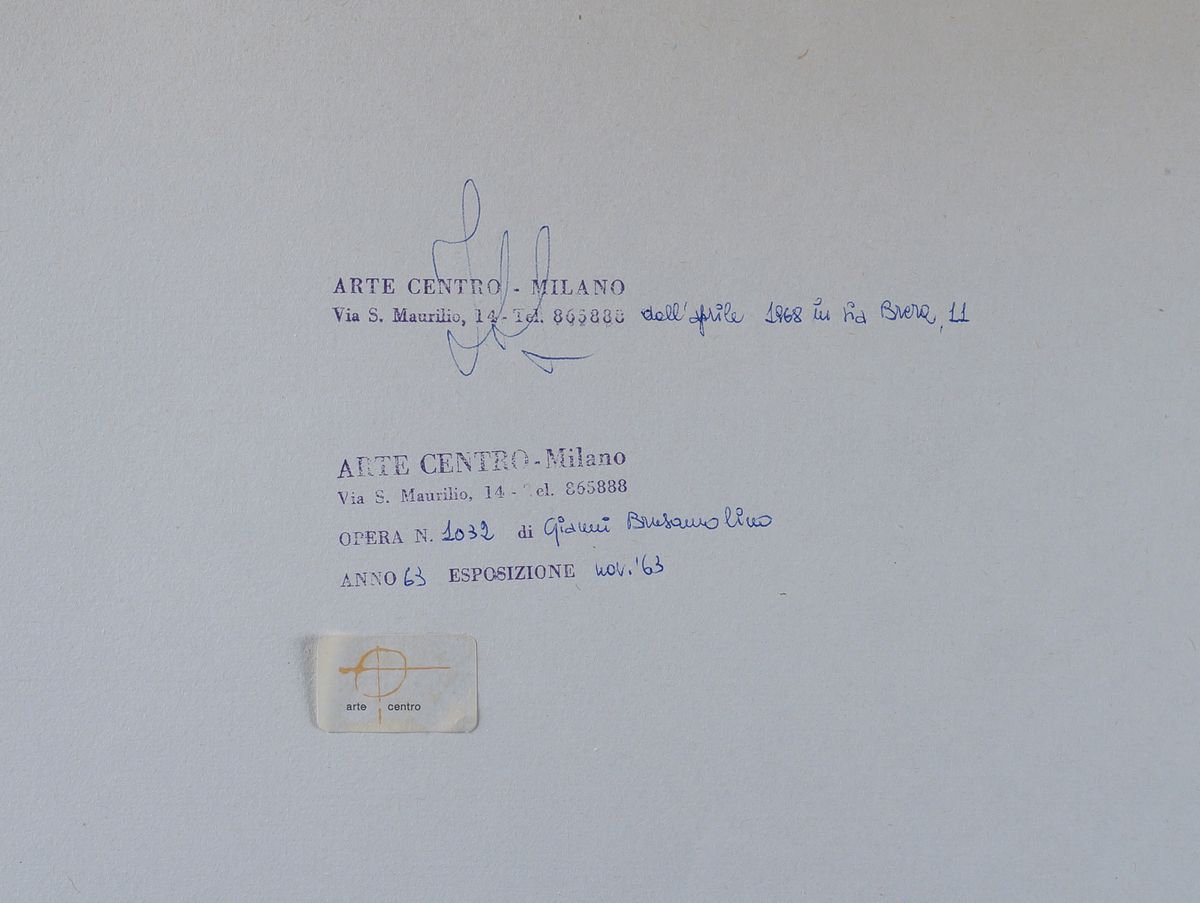 ARTE CENTRO - MILANO
Via S. Maurilio, 14 - Tel. 865888 dall'aprile 1968 in via Brera, 11
ARTE CENTRO - Milano
Via S. Maurilio, 14 - Tel. 865888
OPERA N. 1032 di Gianni Brusamolino
ANNO 63 ESPOSIZIONE nov. '63
arte centro